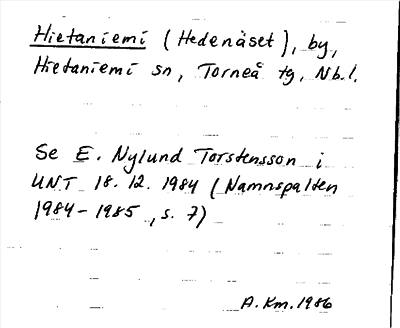 Hietaniemi (Hedenäset), by,
Hietaniemi sn, Torneå tg, Nb.l.
Se E. Nylund Torstensson i
UNT 18.12.1984 (Namnspalten
1984-1985, s. 7)
A. Km. 1986